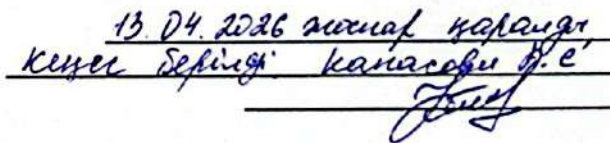 13.04.2026 жоспар қаралды
Кеңес берілді Капасова Б.Е